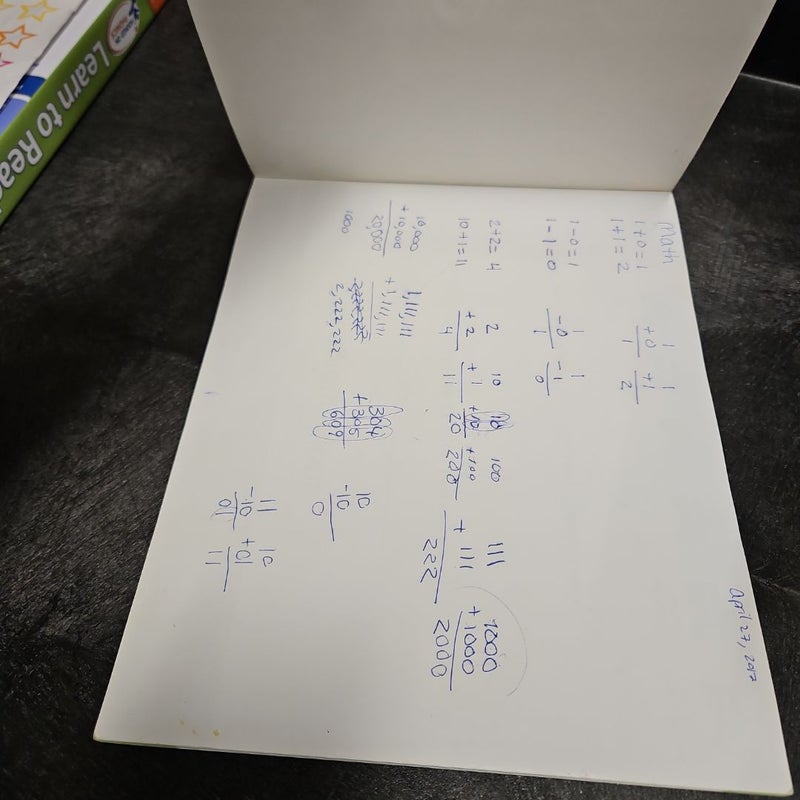 Learn to Read
Math
April 27, 2017
1+0=1
1 +0 1
1 +1 2
1+1=2
1-0=1
1 -0 1
1 -1 0
1-1=0
2+2=4
2 +2 4
10 +1 11
10 +10 20
100 +100 200
111 + 111 222
1000 + 1000 2000
10+1=11
10,000 + 10,000 20,000
1,111,111 +1,111,111 2,222,222
304 +305 609
10 -10 0
1000
11 -10 01
10 +01 11